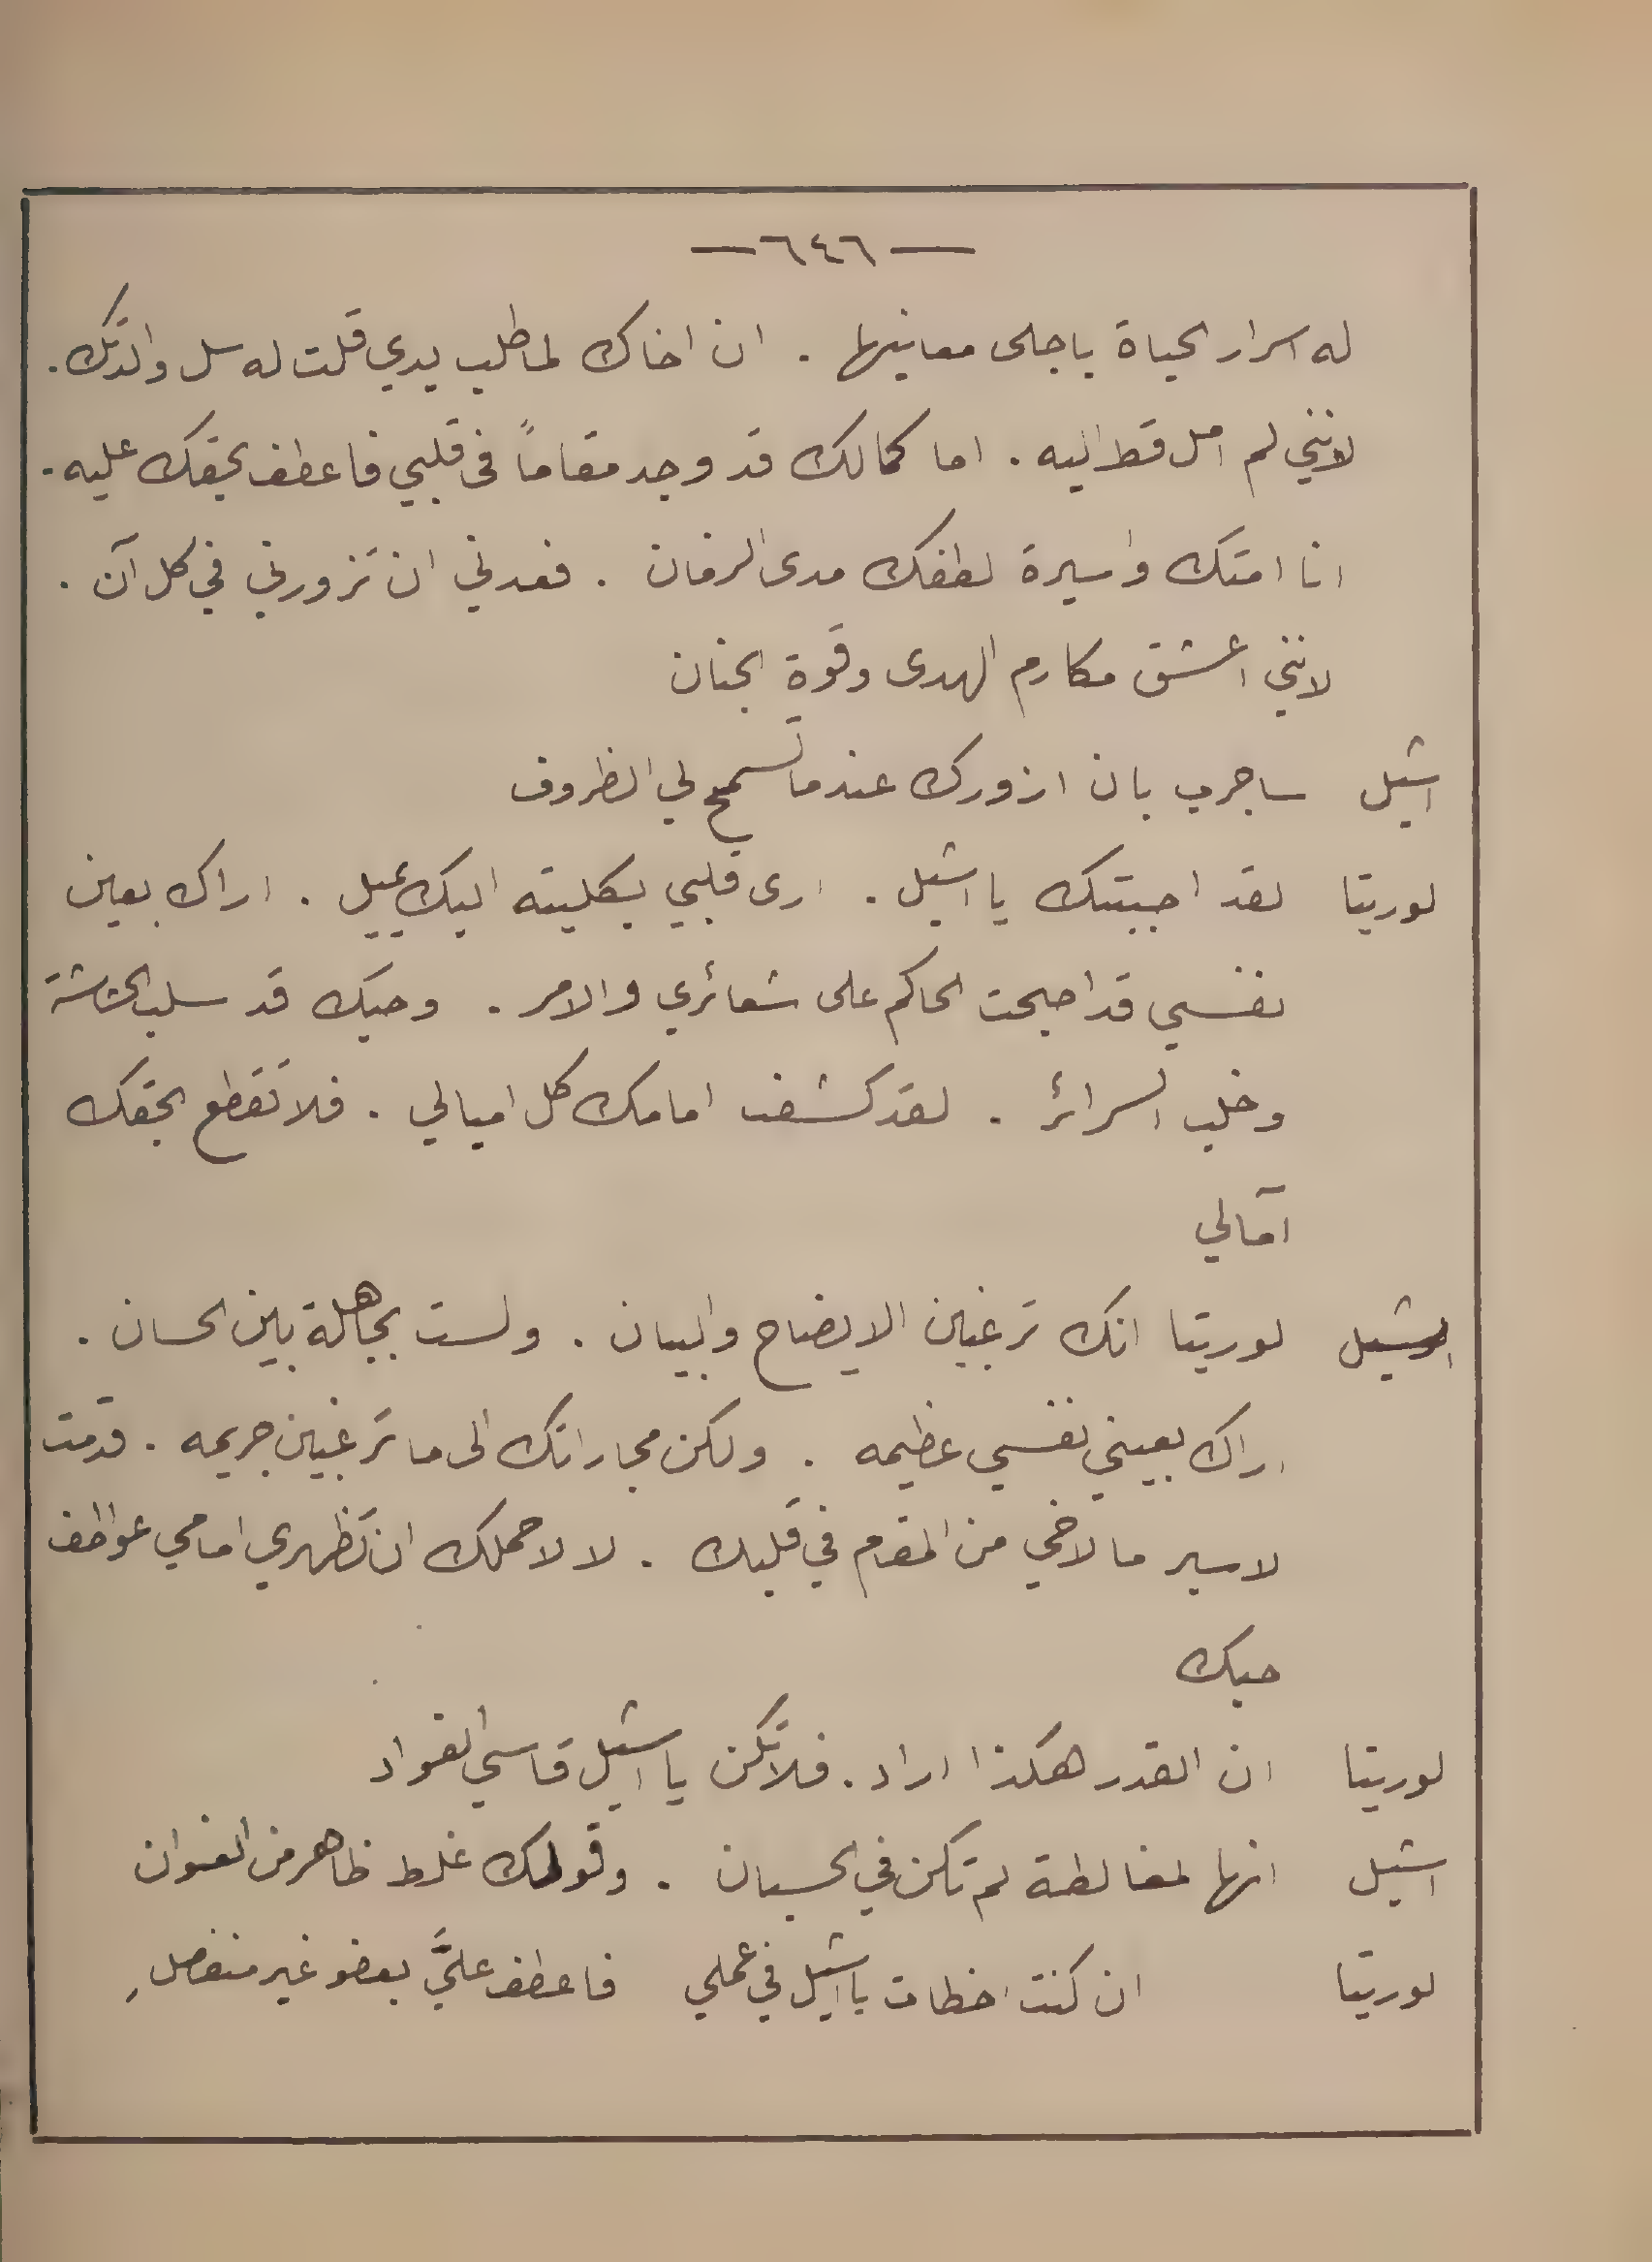 — ٦٤٦ —
له اسرار الحياة باجلى معانيها . ان اخاك لما طلب يدي قلت له سل والدتك .
لانني لم امل قط اليه . اما كمالك قد وجد مقاماً في قلبي فاعطف بحقك عليه .
انا امتك واسيرة لطفك مدى الزمان . فعدني ان تزورني في كل آن .
لانني اعشق مكارم الهدى وقوة الجنان
اشيل ساجرب بان ازورك عندما تسمح لي الظروف
لوريتا لقد احببتك يا اشيل . ارى قلبي بكليته اليك يميل . اراك بعين
نفسي قد اصبحت الحاكم على شعائري والامر . وحبك قد سلب الحشاشة
وخلب السرائر . لقد كشفت امامك كل اميالي . فلا تقطع بحقك
آمالي
اشيل لوريتا انك ترغبين الايضاح والبيان . ولست بجاهلة بين الحسان .
اراك بعيني نفسي عظيمه . ولكن مجاراتك الى ما ترغبين جريمه . قدمت
لاسبر ما لاخي من المقام في قلبك . لا لاحملك ان تظهري امامي عواطف
حبك
لوريتا ان القدر هكذا اراد . فلا تكن يا اشيل قاسي الفواد
اشيل انها لمغالطة لم تكن في الحسبان . وقولك غلط ظاهر من العنوان
لوريتا ان كنت اخطات يا اشيل في عملي فاعطف عليَّ بعفو غير منفصلِ